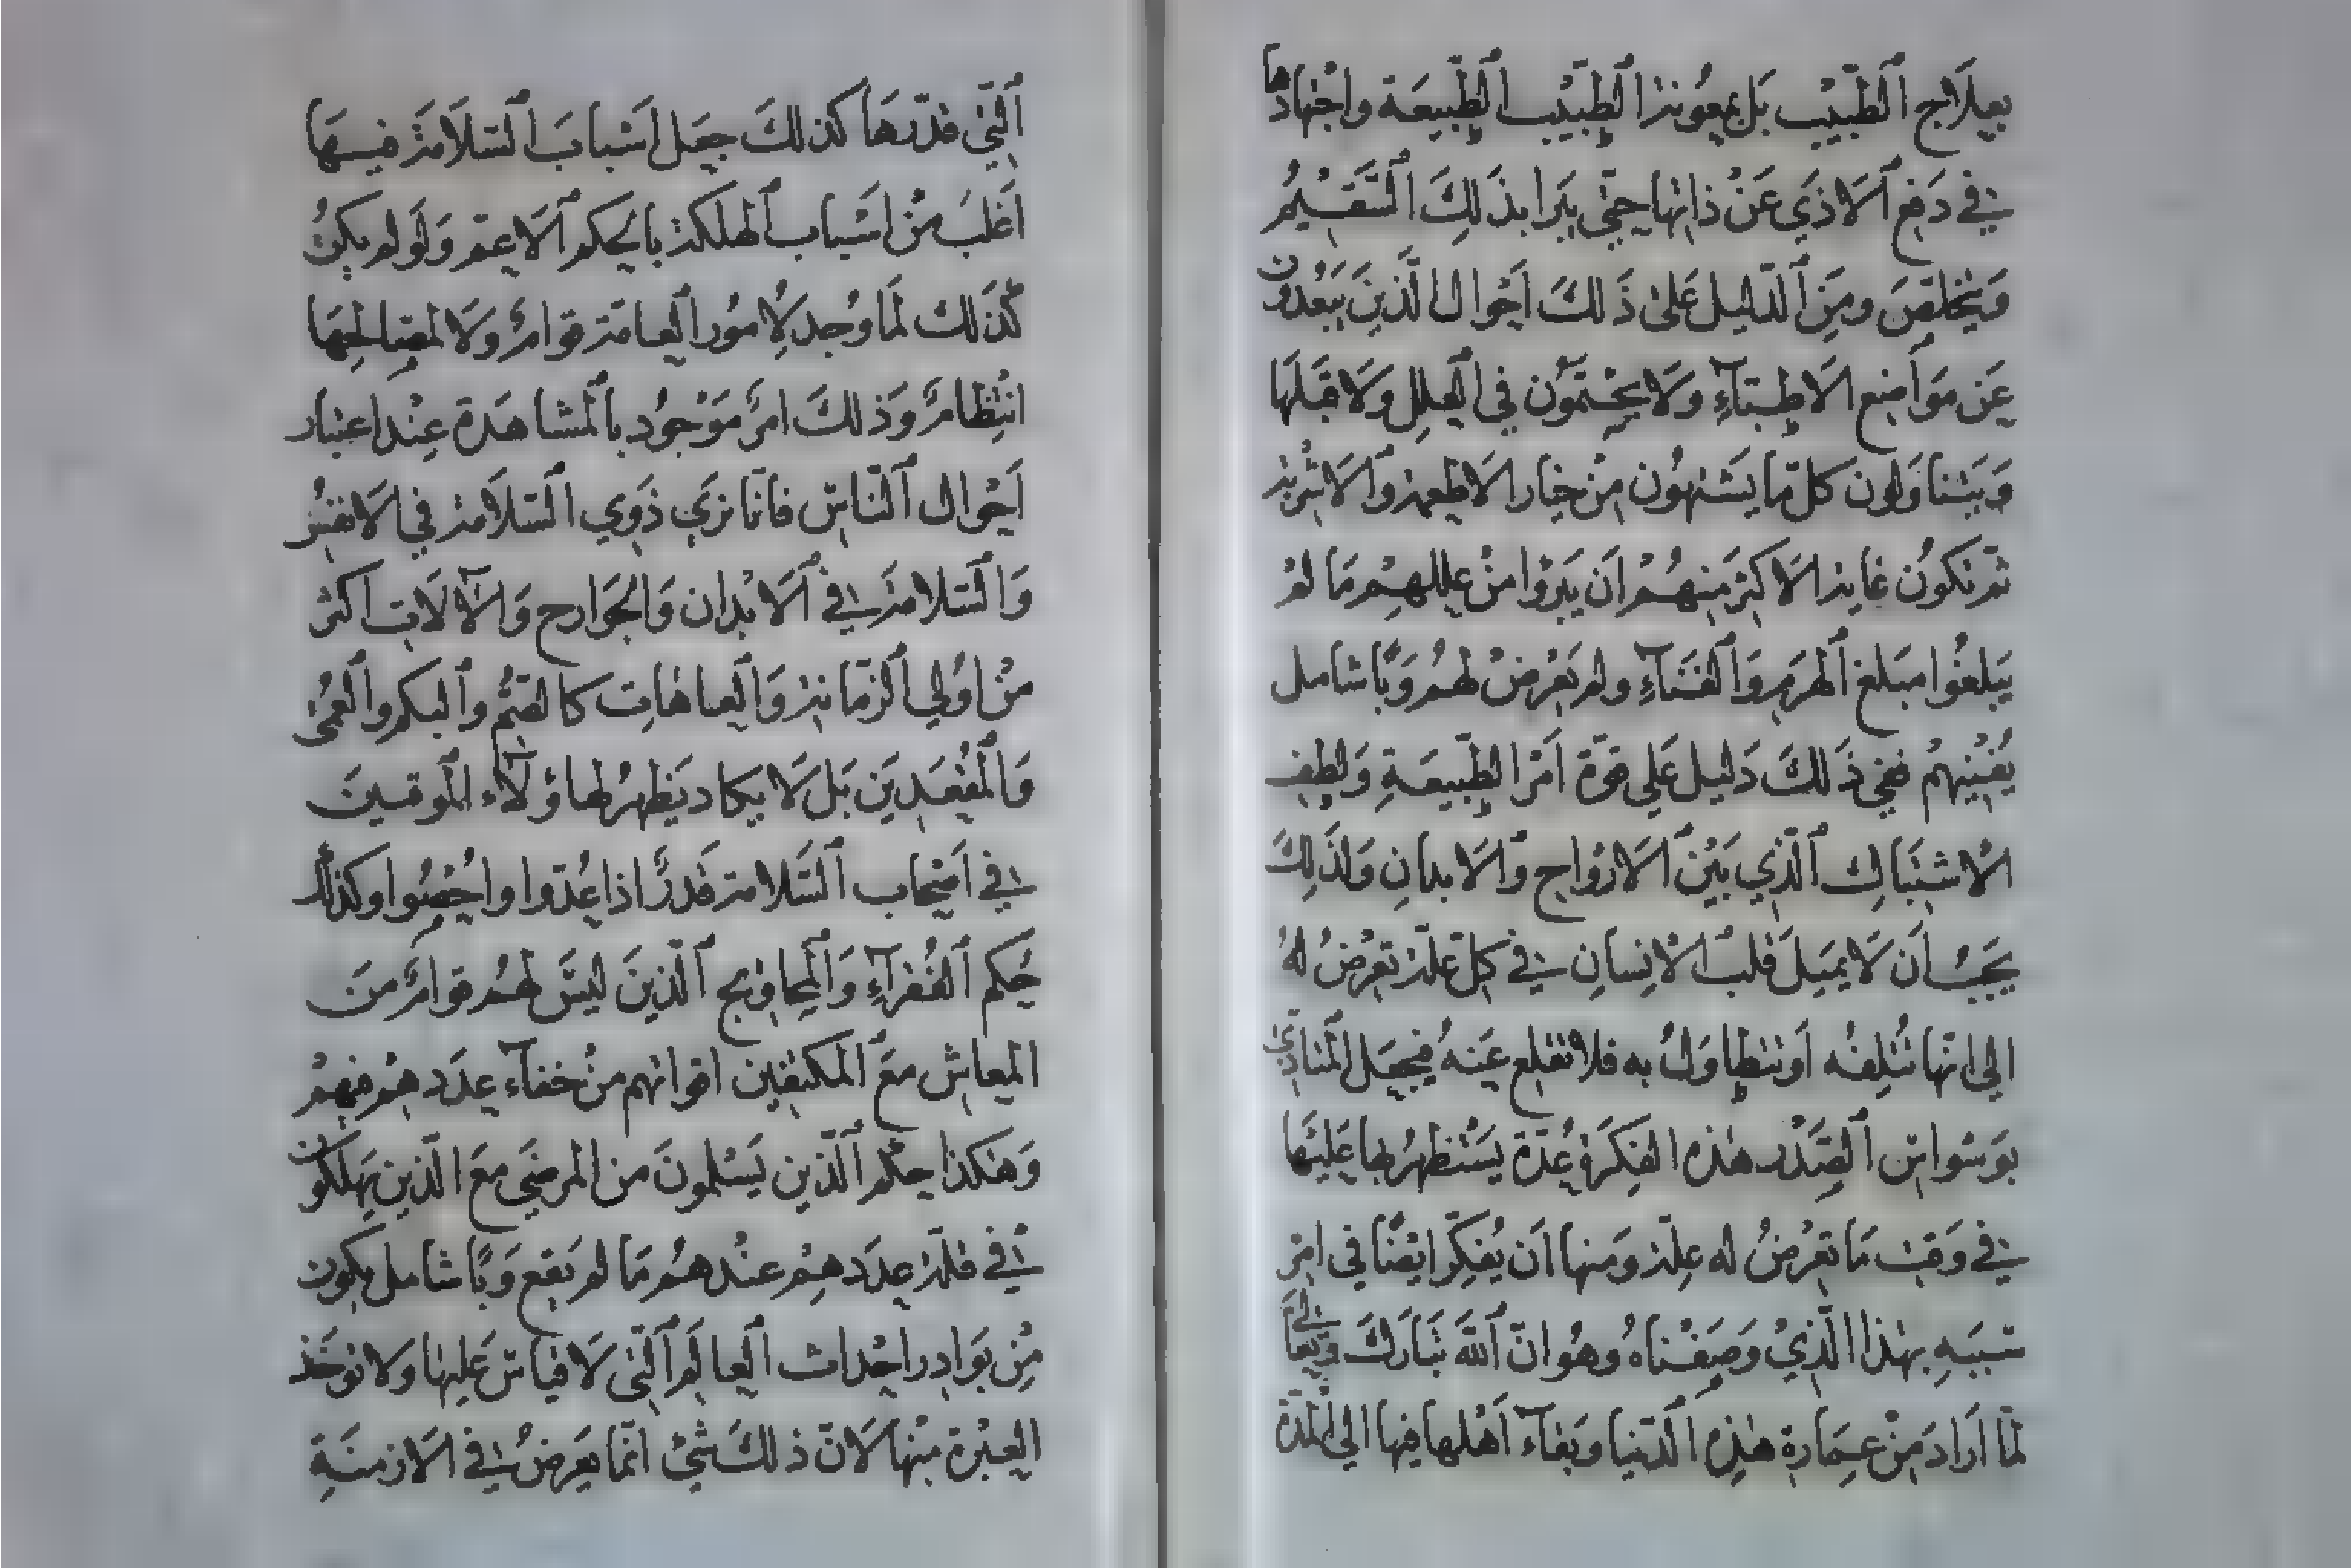 بعِلَاج ٱلطّبيْب بَل بمعُونة ٱلطبيْب ٱلطّبيعَة واجْتهادها
في دَفع ٱلاَذَي عَنْ ذاتها حتّي يَبرا بذَلِكَ ٱلسَّقيْمُ
وَيتخلّصَ ومِنَ ٱلدّليل عَلىٰ ذَلكَ اَحْوال الَّذينَ يَبعُدون
عَن مَوَاضع الاَطِبّآءِ ولَا يحْتمَوُن في ٱلعِلل ولَا قبَلَهَا
وَيَتناوَلون كلّ مّا يَشتهوُن مِنْ خيَار الاَطعمة وٱلاَشْربة
ثم تكوُن غاية الاَكثر مِنهُمْ اَن يَبرَوْا منْ عِللهِم مَا لمْ
يَبلغُوا مبَلغ ٱلهرَمِ وَٱلفَنآءِ ولم يَعْرضْ لهمُ وَبًا شامل
يُفنِيْهِمُ ففي ذَلكَ دَليل عَلي قوّة اَمْر الطّبيعَةِ وَلطِف
الاْشتبَاكِ ٱلّذي بَيْن ٱلاَرْوَاحِ وٱلاَبدانِ وَلذَلكَ
يَجَبُ اَن لَا يمَيلَ قلبُ الاْنِسانِ في كلّ علّة تعْرضُ لهُ
الي انّها تُتلِفُه اَو تتطاوَلُ به فلا تقلع عَنهُ فيجعَل ٱلمتأذّي
بوَسْواسِ ٱلصَّدْر هٰذه الفِكرَة عُدّة يَسْتظهرُ بها عَليْهَا
في وَقت مَا تعْرضُ له عِلّة وَمنها اَن يُفكِّر ايْضًا في امرْ
سَببَهِ بهٰذا الّذيْ وَصَفْناهُ وهُو انّ ٱللهَ تَبَارَكَ وَتعَالَى
لمّا اَرادَ مِنْ عمِارَة هٰذِه ٱلدّنيا وبَقآءَ اَهْلها فيها الي ٱلمدّة
ٱلّتي قدّرهَا كذلكَ جعَل اَسْبابَ ٱلسّلاَمَة فيهَا
اَغلبَ مِنْ اسْباب ٱلهلكة بالحكم ٱلاَعمّ وَلَو لم يكنُ
كذَلك لمَا وُجد لاِمُور ٱلعامّة قوامٌ وَلَا لمصَالحِهَا
انْتِظامٌ وَذلكَ امرٌ مَوْجوُد بٱلمشاهَدة عِنْد اعتبار
اَحْوال ٱلنّاسِ فانّا نرَي ذَوِي ٱلسّلاَمة في الاَنفسُ
وَٱلسّلامَة في ٱلاَبْدان وَالجَوَارح وَالآلاَت اكثر
مِنْ اوُلي ٱلزّمانة وَٱلعاهَاتِ كالصُّمّ وٱلبكم وٱلعُمْي
وَٱلمُقعَدِينَ بَل لَا يكاد يَظهرُ لهاؤلآء المَوقينَ
في اَصْحاب ٱلسّلامة قَدرٌ اذا عُدّوا واُحْصُوا وكذلك
حُكم ٱلفُقرآءِ وَٱلمحاوِيج ٱلّذينَ ليسَ لهمُ قوامٌ منَ
المعاش مَعَ المكتفين اقواتهم منْ خفآء عدَد همْ فهم
وَهَٰكذا حكم ٱلّذين يَسْلمونَ من المرضَي معَ الّذين يَهلكون
في قلّة عدَدهِمْ عنْدهمُ مَا لم يَقع وَبًا شامل يكون
مِنْ بوَادِر احْداث ٱلعالمَ ٱلّتي لَا قيَاسَ عَليهَا وَلا تؤخَذ
العِبْرة منْها لاَنّ ذلكَ شيْ انّما يَعرَضُ في الاَزمنَةِ